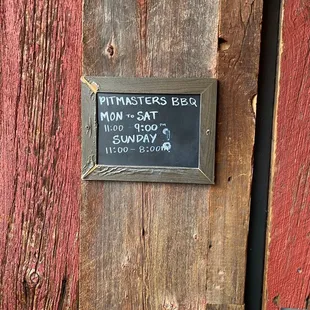 PITMASTERS BBQ
MON TO SAT
11:00 - 9:00PM
SUNDAY
11:00 - 8:00PM